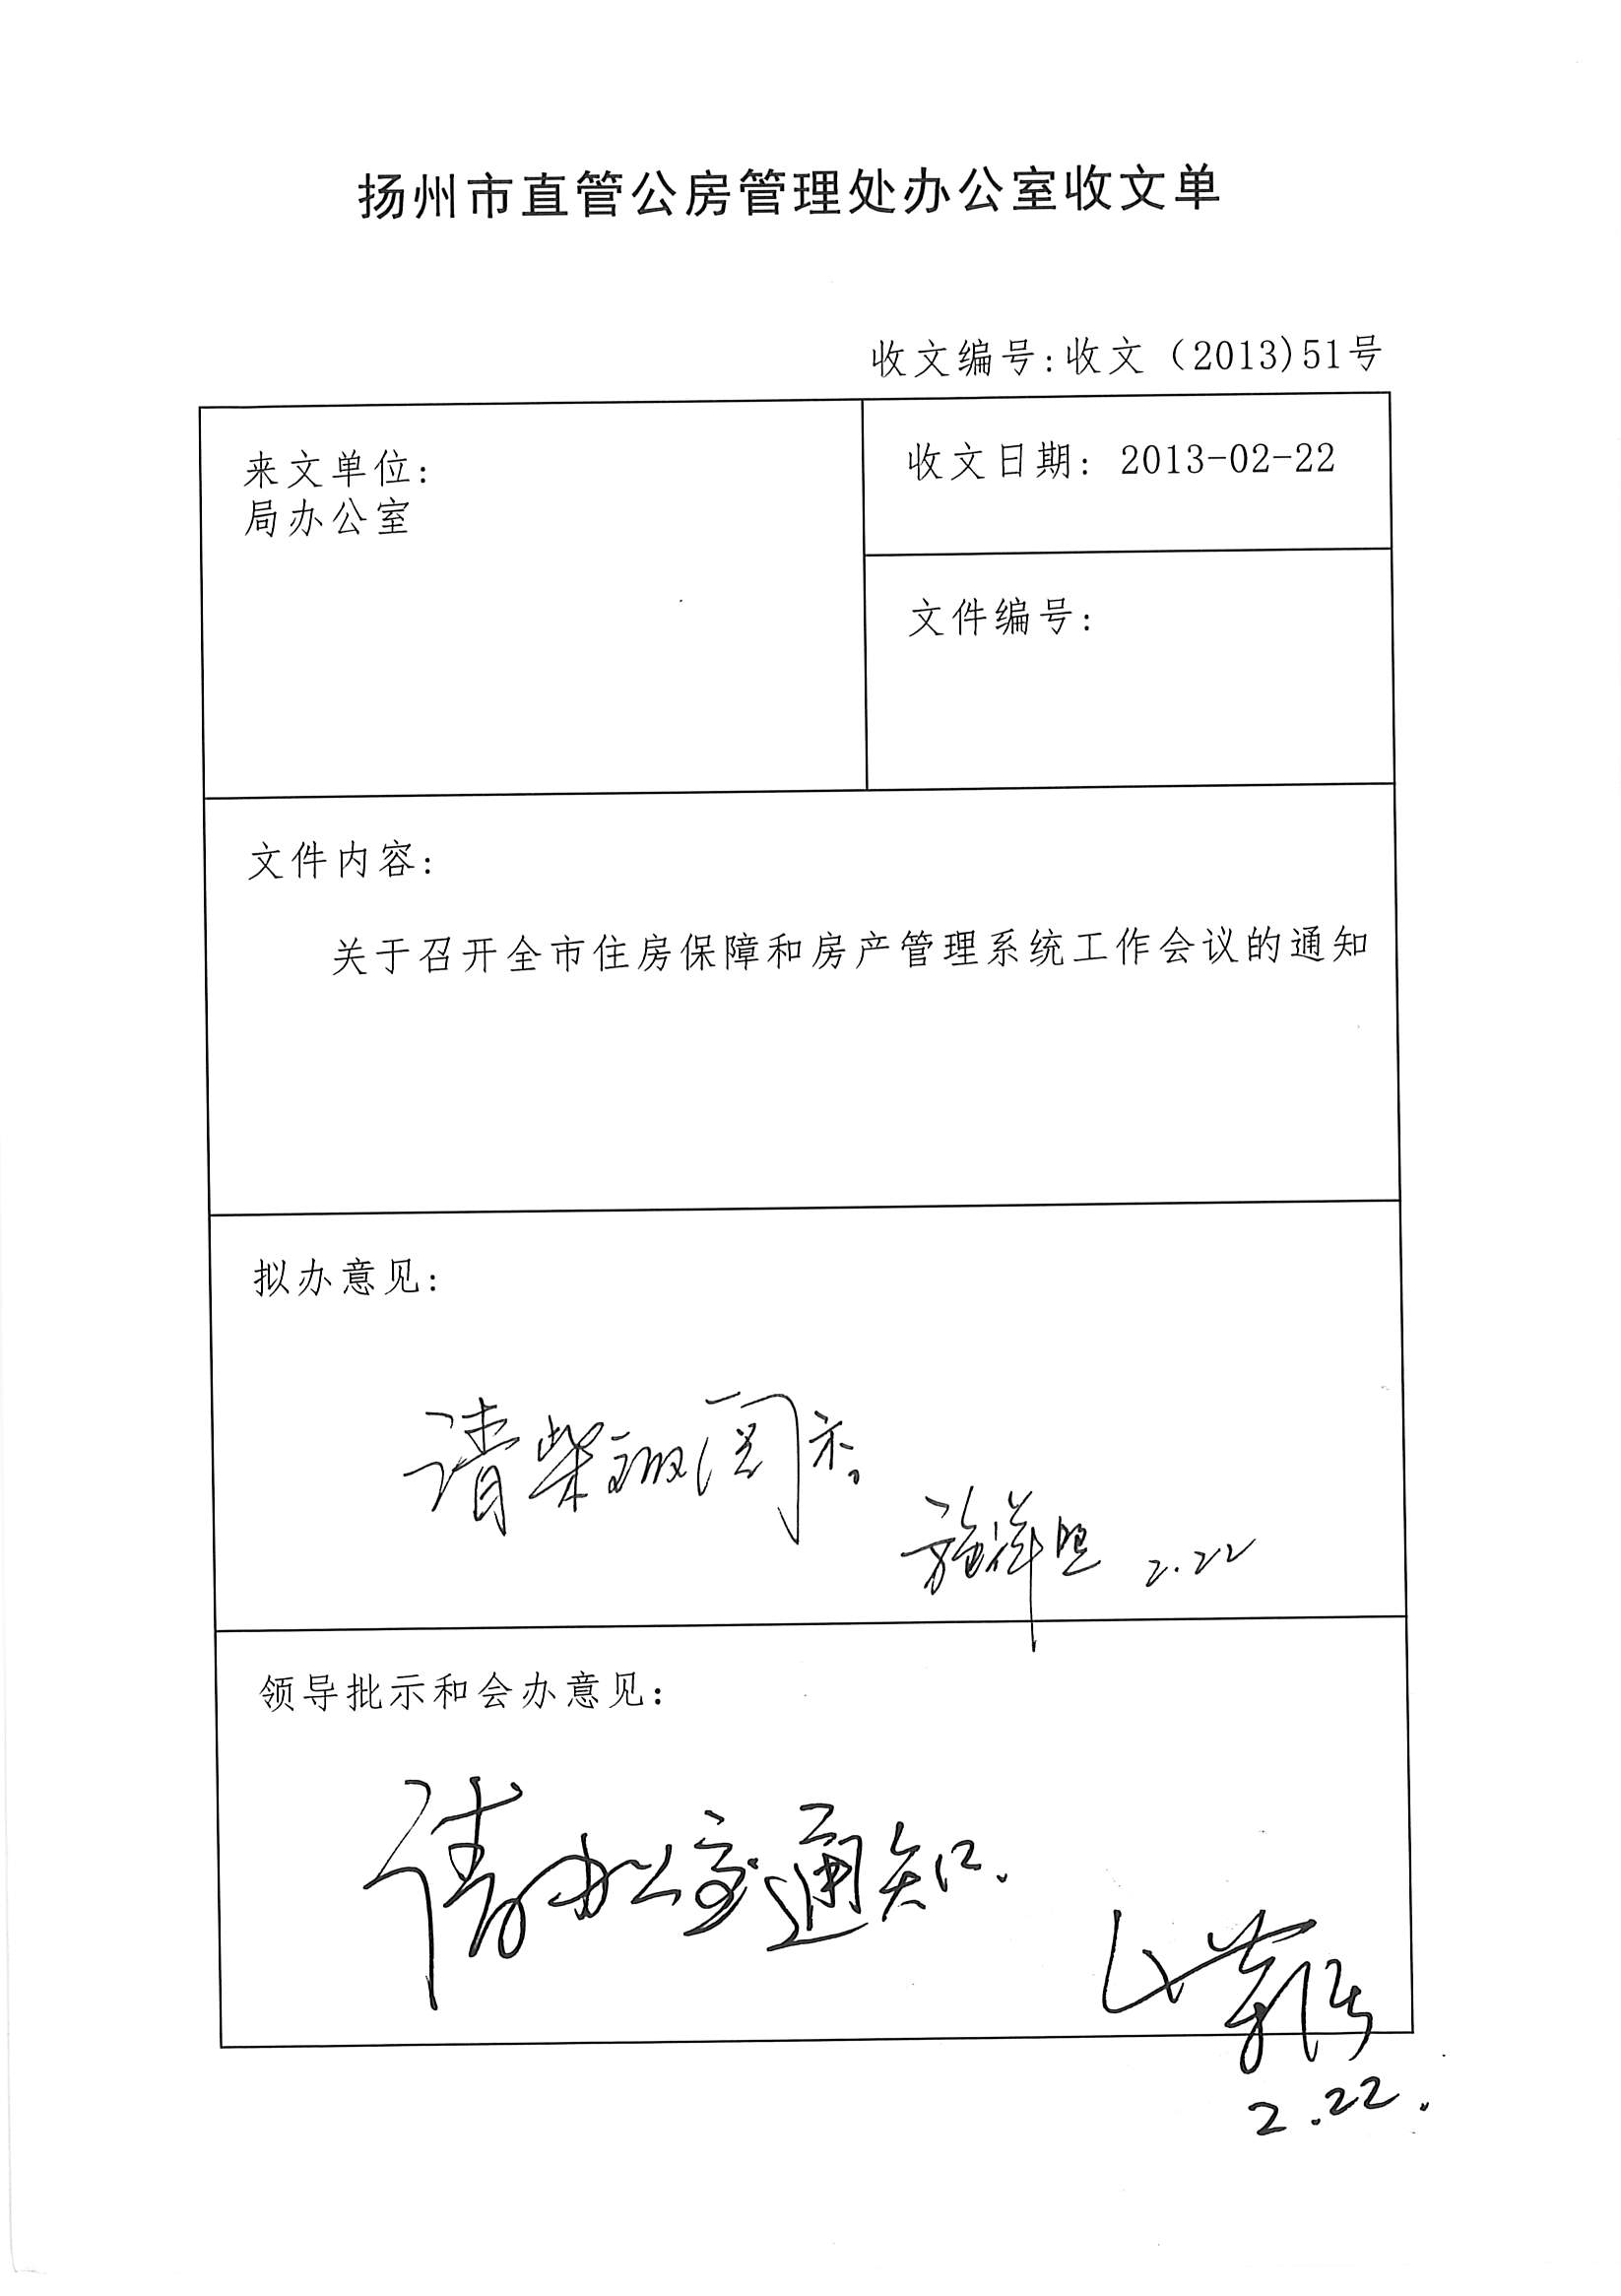 扬州市直管公房管理处办公室收文单
收文编号:收文（2013)51号
来文单位:
局办公室
收文日期: 2013-02-22
文件编号:
文件内容:
关于召开全市住房保障和房产管理系统工作会议的通知
拟办意见:
请柴 阅示。
施祥 2.22
领导批示和会办意见:
请办公室通知.
2.22.